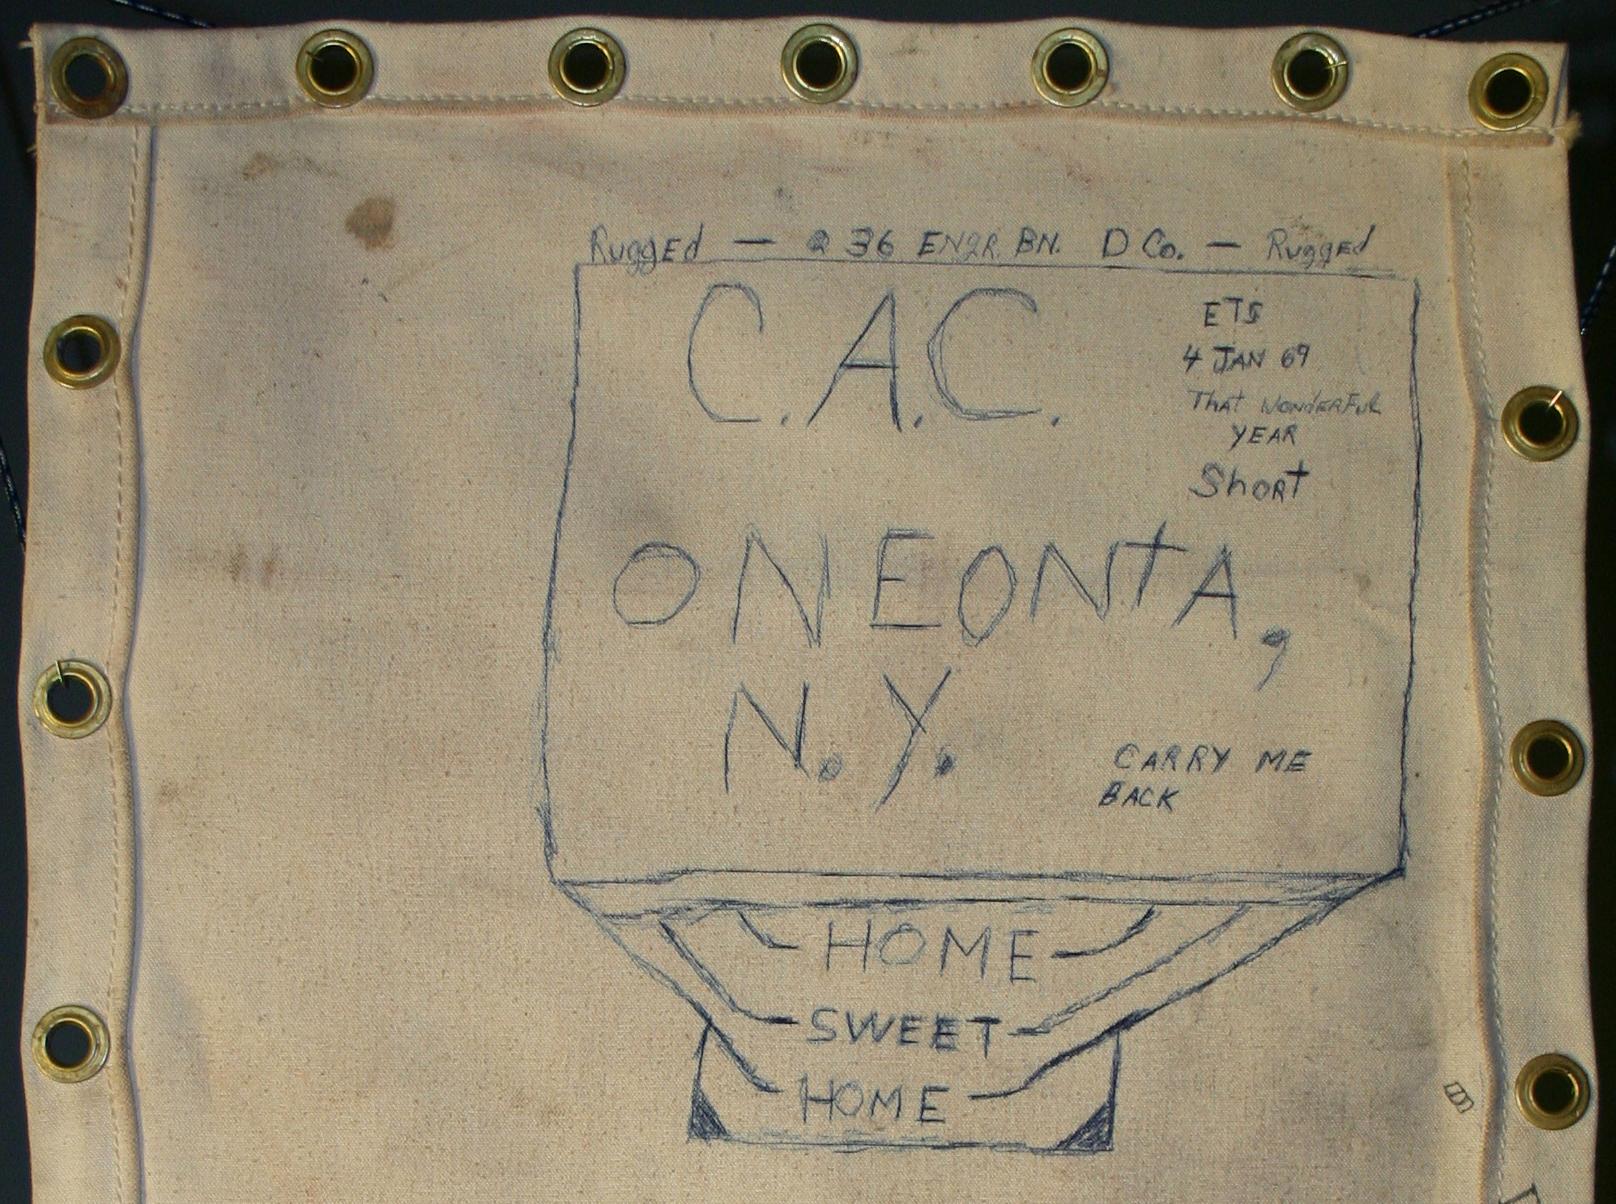 Rugged — 36 ENGR. BN. D Co. — Rugged
C.A.C.
ETS
4 JAN 69
That WONDERFUL
YEAR
Short
ONEONTA,
N.Y.
CARRY ME
BACK
HOME
SWEET
HOME